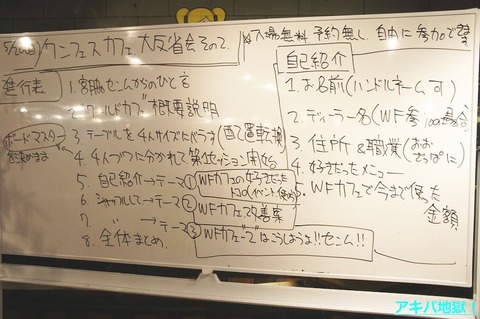 ワンフェスカフェ大反省会その2.
入場無料 予約無し、自由に参加できます
進行表
1. 宮脇センムからのひと言
2. ワールドカフェ概要説明
ボードマスター
を決めます
3. テーブルを4人サイズにバラす
4. 4人づつに分かれて第1セッション開始
5. 自己紹介→テーマ① WFカフェの好きだった
6. シャッフルして→テーマ② WFカフェ改善案
7. 〃 →テーマ③ WFカフェ"で"はこうしようよ!!センム!!
8. 全体まとめ
自己紹介
1. お名前(ハンドルネーム可)
2. ディーラー名(WF参加の場合)
3. 住所&職業(おおざっぱに)
4. 好きだったメニュー
5. WFカフェで今まで使った
金額
アキバ地獄!